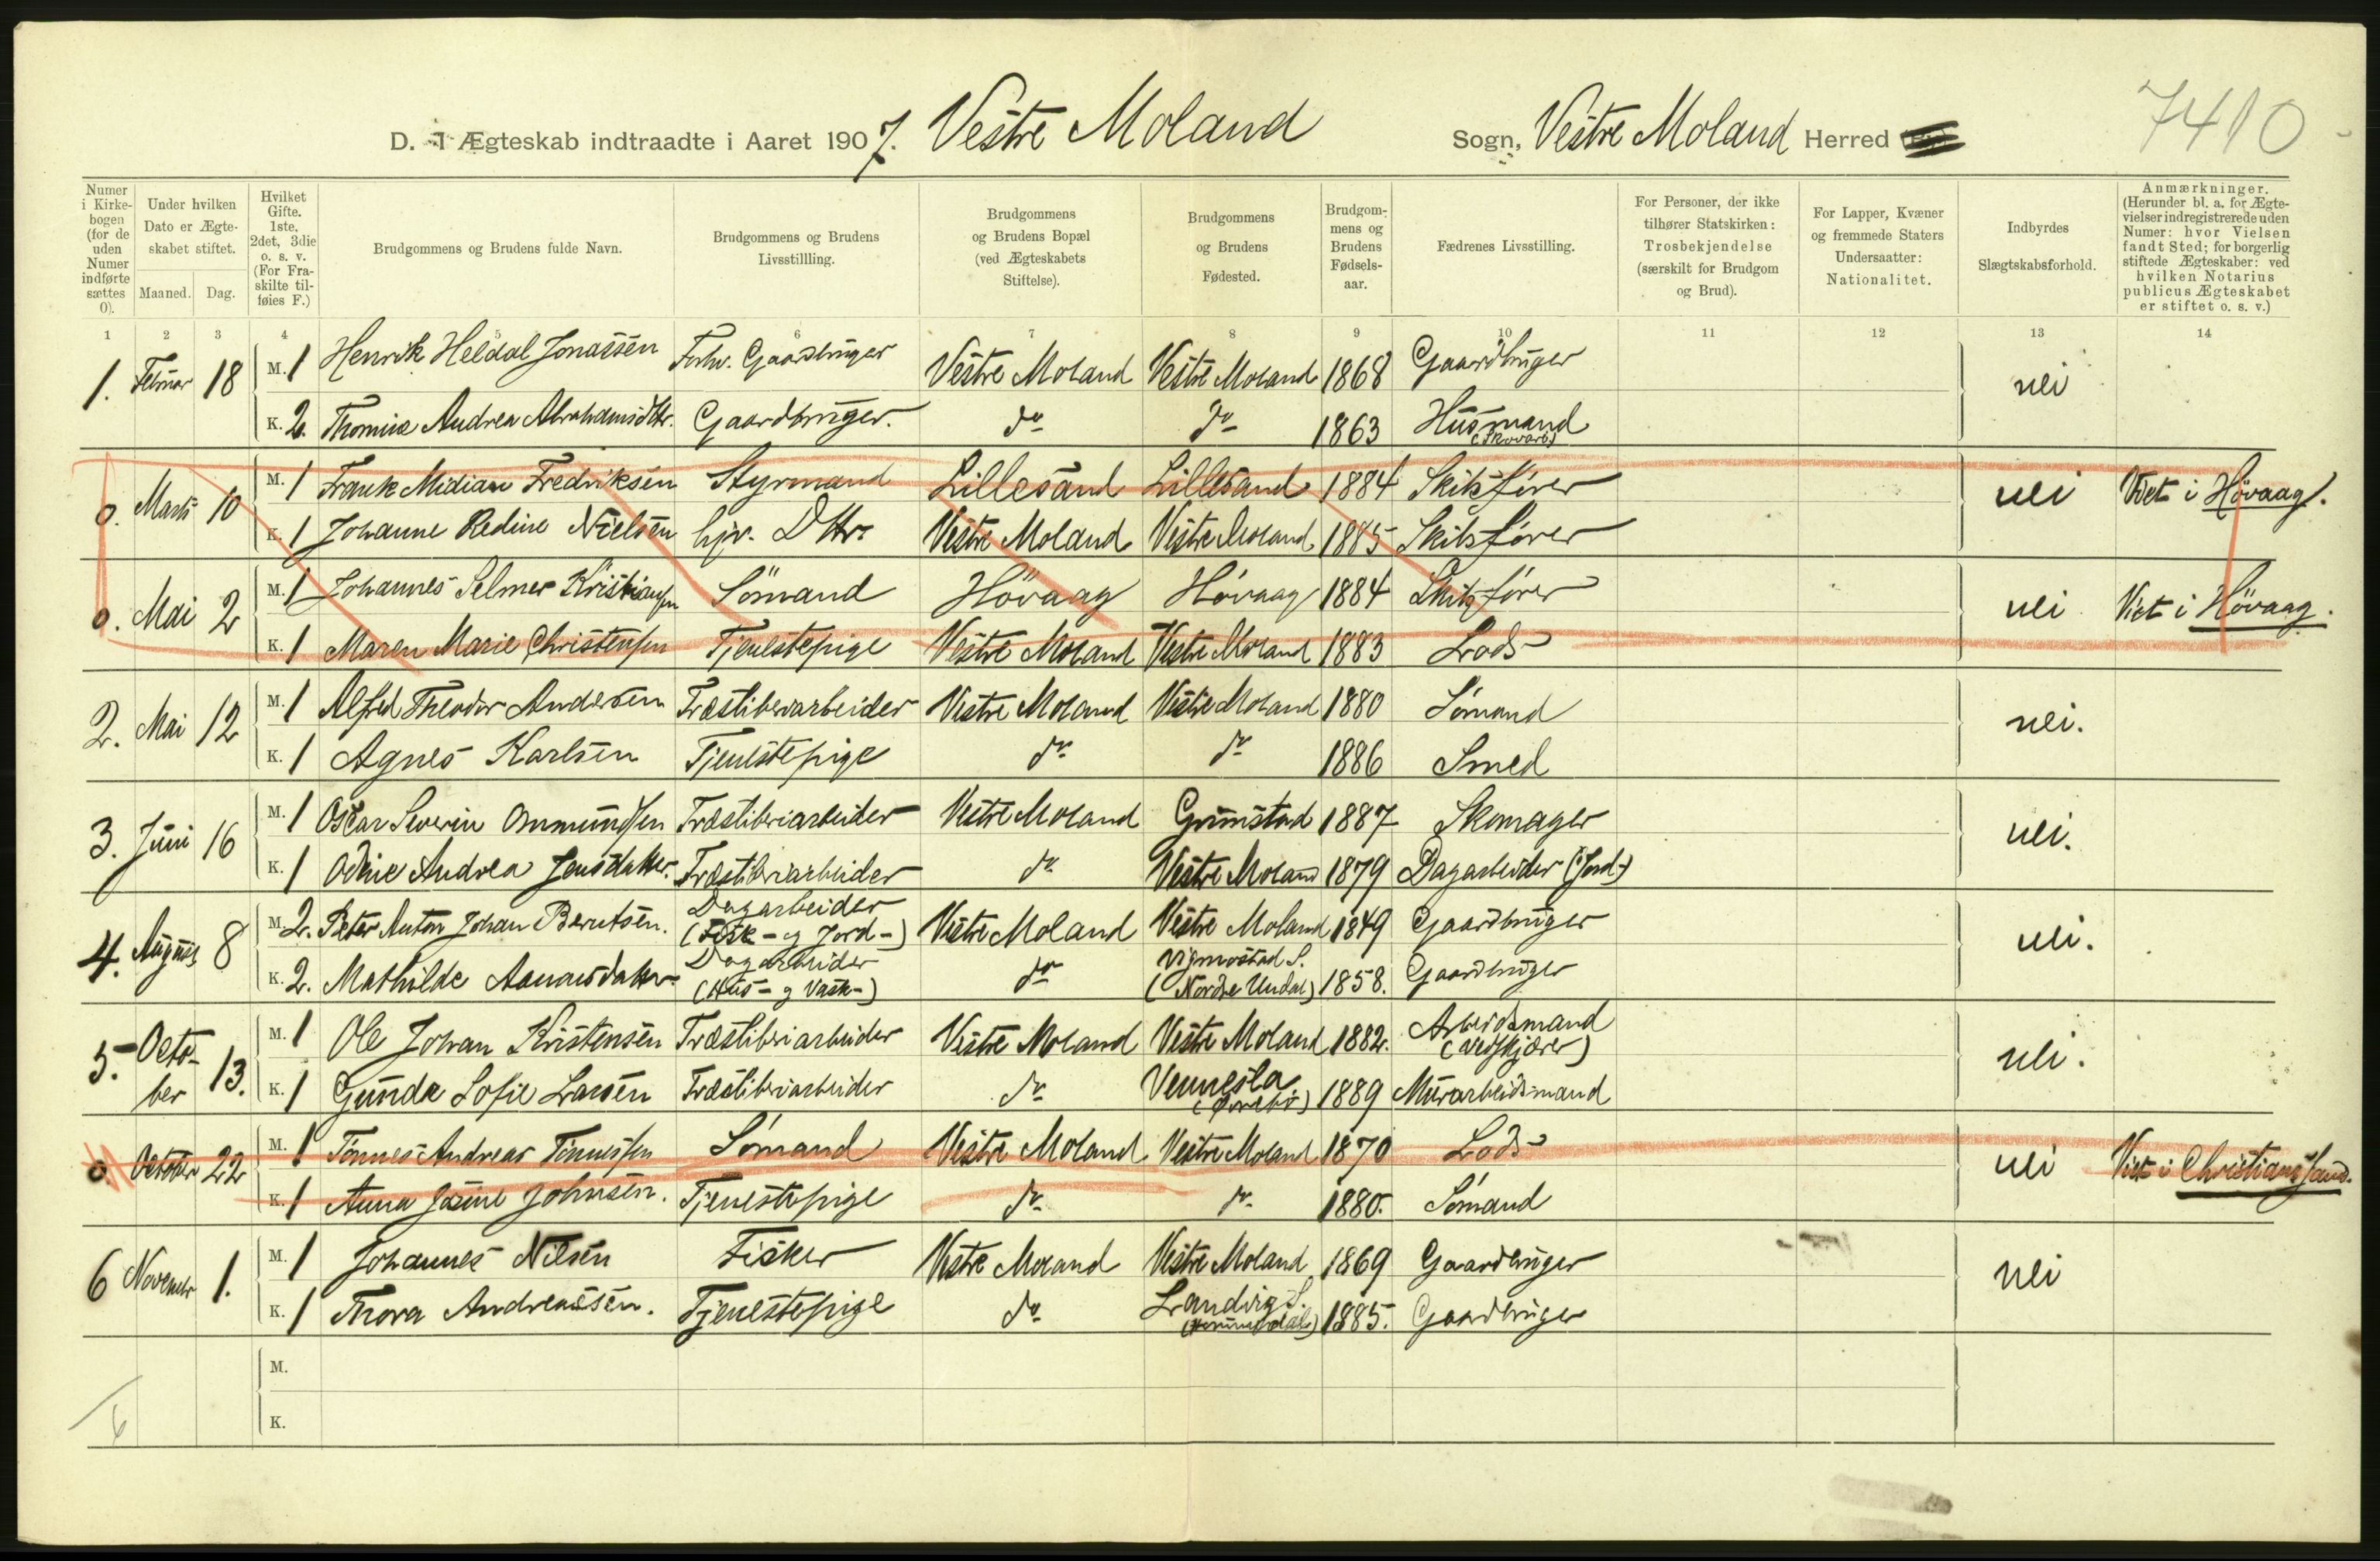 7410
D. I Ægteskab indtraadte i Aaret 1907. Vestre Moland Sogn, Vestre Moland Herred
Numer i Kirkebogen (for de uden Numer indførte sættes 0).
Under hvilken Dato er Ægteskabet stiftet.
Maaned. Dag.
Hvilket Gifte. 1ste. 2det, 3die o. s. v. (For Fraskilte tilføies F.)
Brudgommens og Brudens fulde Navn.
Brudgommens og Brudens Livsstillling.
Brudgommens og Brudens Bopæl (ved Ægteskabets Stiftelse).
Brudgommens og Brudens Fødested.
Brudgommens og Brudens Fødselsaar.
Fædrenes Livsstilling.
For Personer, der ikke tilhører Statskirken: Trosbekjendelse (særskilt for Brudgom og Brud).
For Lapper, Kvæner og fremmede Staters Undersaatter: Nationalitet.
Indbyrdes Slægtskabsforhold.
Anmærkninger. (Herunder bl. a. for Ægtevielser indregistrerede uden Numer: hvor Vielsen fandt Sted; for borgerlig stiftede Ægteskaber: ved hvilken Notarius publicus Ægteskabet er stiftet o. s. v.)
1 2 3 4 5 6 7 8 9 10 11 12 13 14
1. Februar 18 M. 1 Henrik Heldal Jonassen Forhv. Gaardbruger Vestre Moland Vestre Moland 1868 Gaardbruger nei
K. 2. Thomine Andrea Abrahamsdtr. Gaardbruger. do do 1863 Husmand
0. Marts 10 M. 1 Frank Midian Fredriksen Styrmand Lillesand Lillesand 1884 Skibsfører nei Viet i Hövaag.
K. 1 Johanne Redine Nielsen hjv. Dttr. Vestre Moland Vestre Moland 1885 Skibsfører
0. Mai 2 M. 1 Johannes Selmer Kristiansen Sömand Hövaag Hövaag 1884 Skibsfører nei Viet i Hövaag.
K. 1 Maren Marie Christensen Tjenestepige Vestre Moland Vestre Moland 1883 Lods
2. Mai 12 M. 1 Alfred Theodor Andersen Træsliberarbeider Vestre Moland Vestre Moland 1880 Sömand nei.
K. 1 Agnes Karlsen Tjenestepige do do 1886 Smed
3. Juni 16 M. 1 Oscar Severin Ommundsen Træsliberiarbeider Vestre Moland Grimstad 1887 Skomager nei.
K. 1 Odine Andrea Jensdatter. Træsliberiarbeider do Vestre Moland 1879 Dagarbeider (Jord-)
4. August 8 M. 2. Peter Anton Johan Berntsen. Dagarbeider (Fisk- og Jord-) Vestre Moland Vestre Moland 1849 Gaardbruger nei.
K. 2. Mathilde Aanonsdatter Dagarbeider (Hus- og Vask-) do Vigmostad S. (Nordre Undal) 1858. Gaardbruger
5. October 13. M. 1 Ole Johan Kristensen Træsliberiarbeider Vestre Moland Vestre Moland 1882. Arbeidsmand (Vedskjærer) nei.
K. 1 Gunda Sofie Larsen Træsliberiarbeider do Vennesla 1889 Murarbeidsmand
0. October 22 M. 1 Tönnes Andreas Tönnessen Sömand Vestre Moland Vestre Moland 1870 Lods nei Viet i Christianssand.
K. 1 Anna Josine Johnsen. Tjenestepige do do 1880. Sömand
6 November 1. M. 1 Johannes Nilsen Fisker Vestre Moland Vestre Moland 1869 Gaardbruger nei
K. 1 Thora Andreassen. Tjenestepige do Landvig S. 1885. Gaardbruger
M.
K.
6